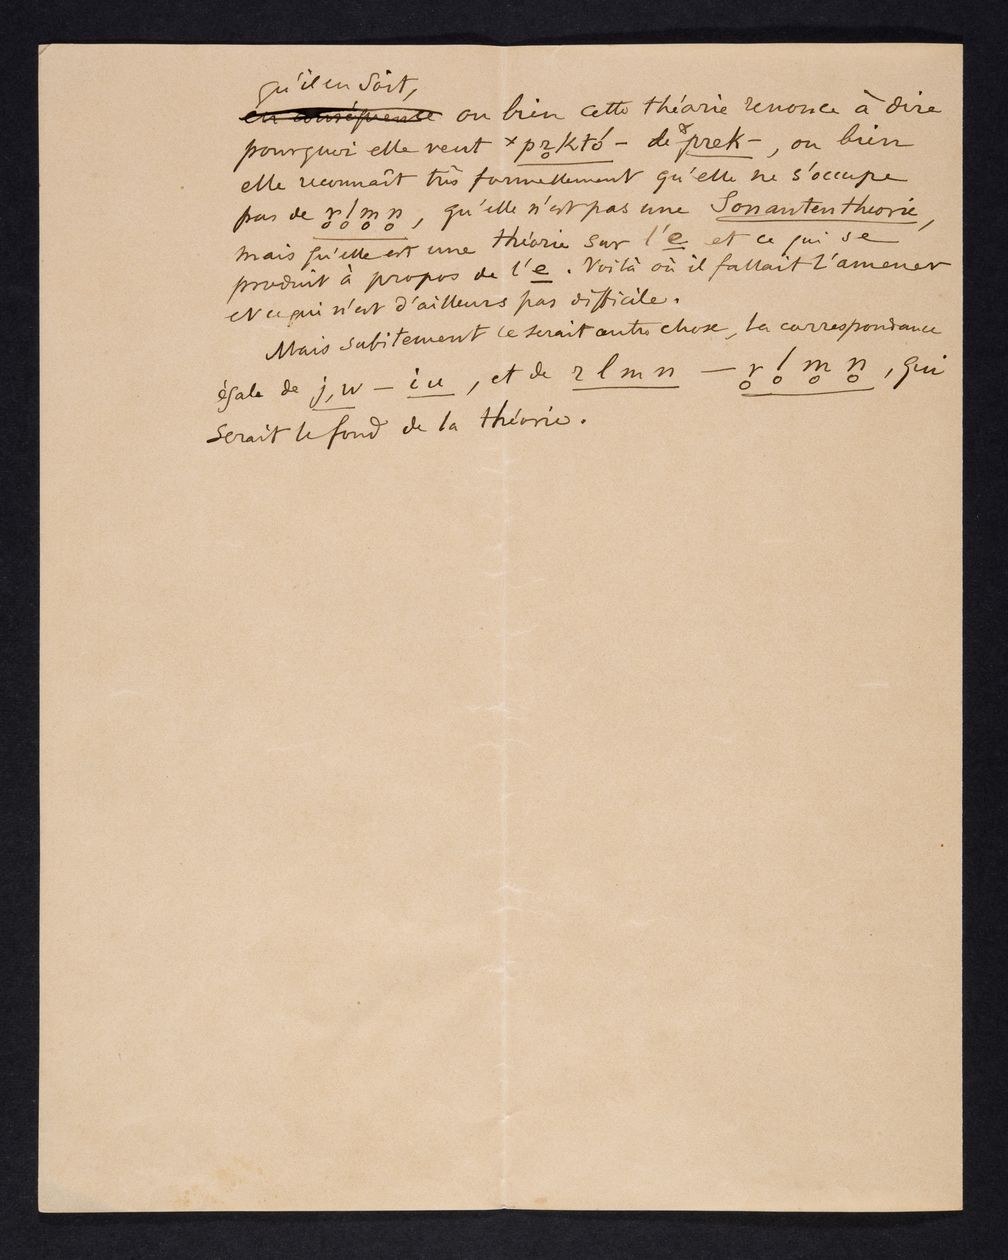 qu'il en soit,
en conséquence ou bien cette théorie renonce à dire
pourquoi elle veut ×pr̥któ- de ×prek-, ou bien
elle reconnaît très formellement qu'elle ne s'occupe
pas de r̥ l̥ m̥ n̥, qu'elle n'est pas une Sonantentheorie,
mais qu'elle est une théorie sur l'e et ce qui se
produit à propos de l'e. Voilà où il fallait l'amener
et ce qui n'est d'ailleurs pas difficile.
Mais subitement ce serait autre chose, la correspondance
égale de j, w — i u, et de r l m n — r̥ l̥ m̥ n̥, qui
serait le fond de la théorie.